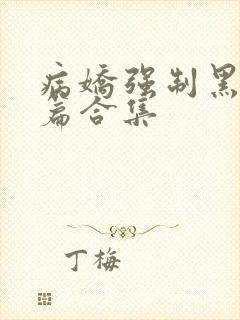 病嬌强制黑
篇合集
丁梅